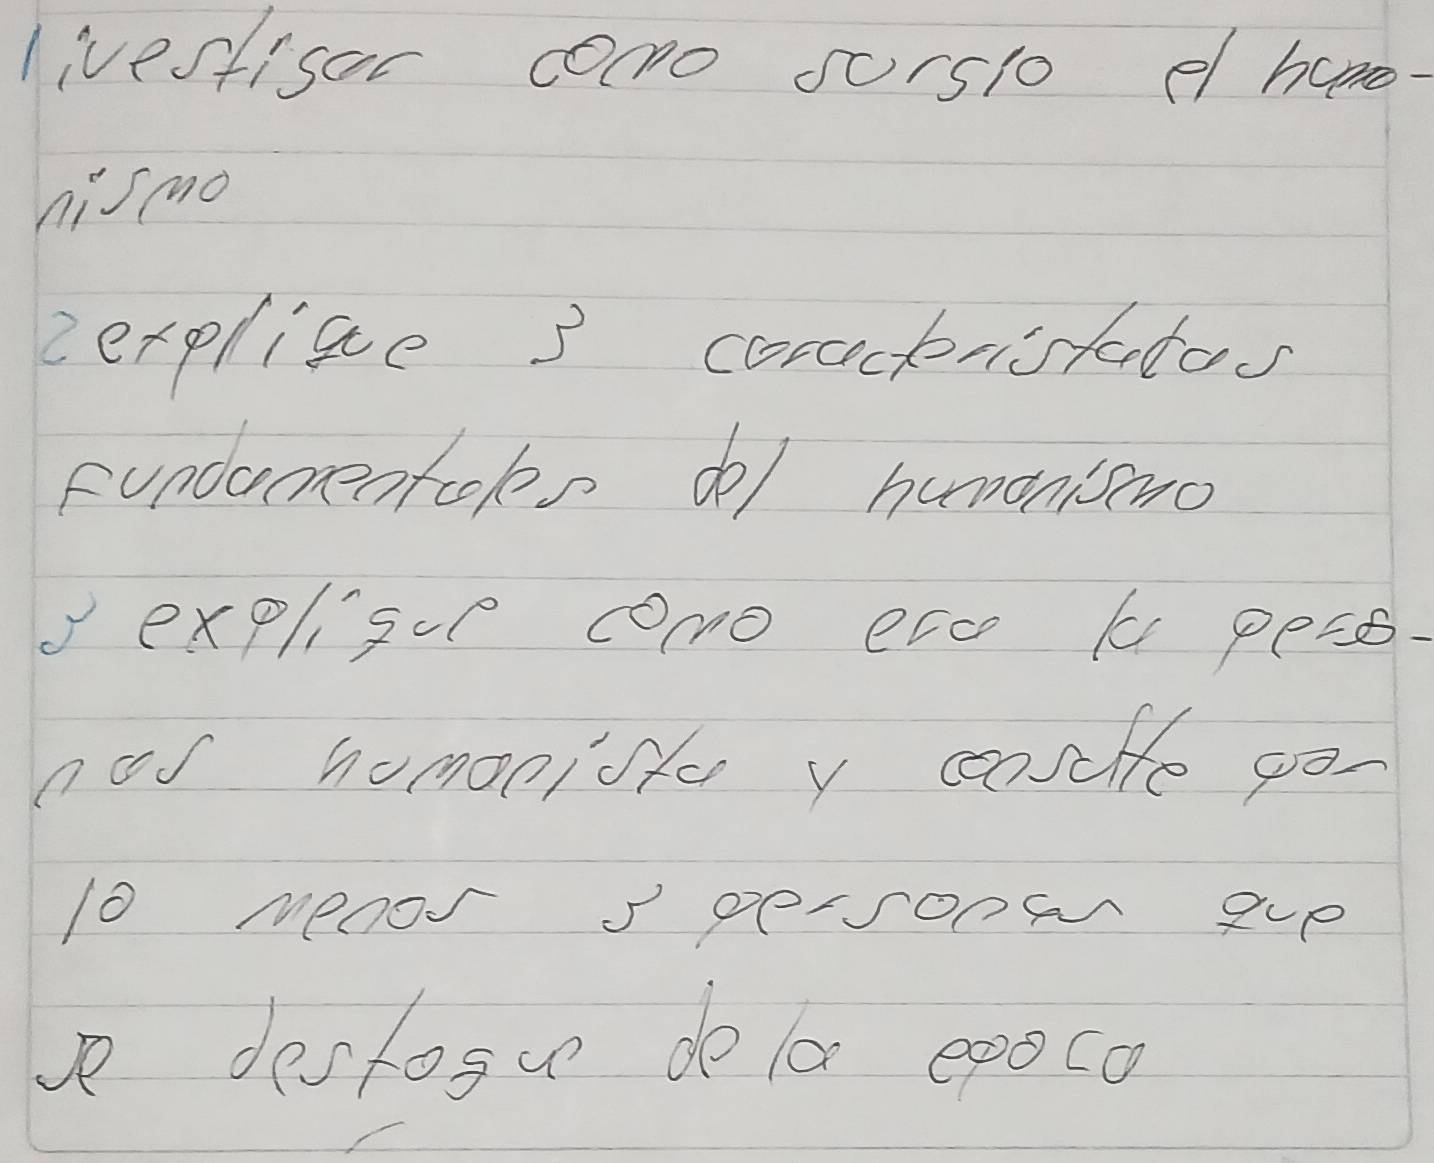 1 ivestigar como surgio el huma-
nismo
2 explique 3 caracteristatas
Fundamentales del humanismo
3 explique como era la perso-
nas humanista y consulte por
lo menos 3 personas que
se destoque de la epoca